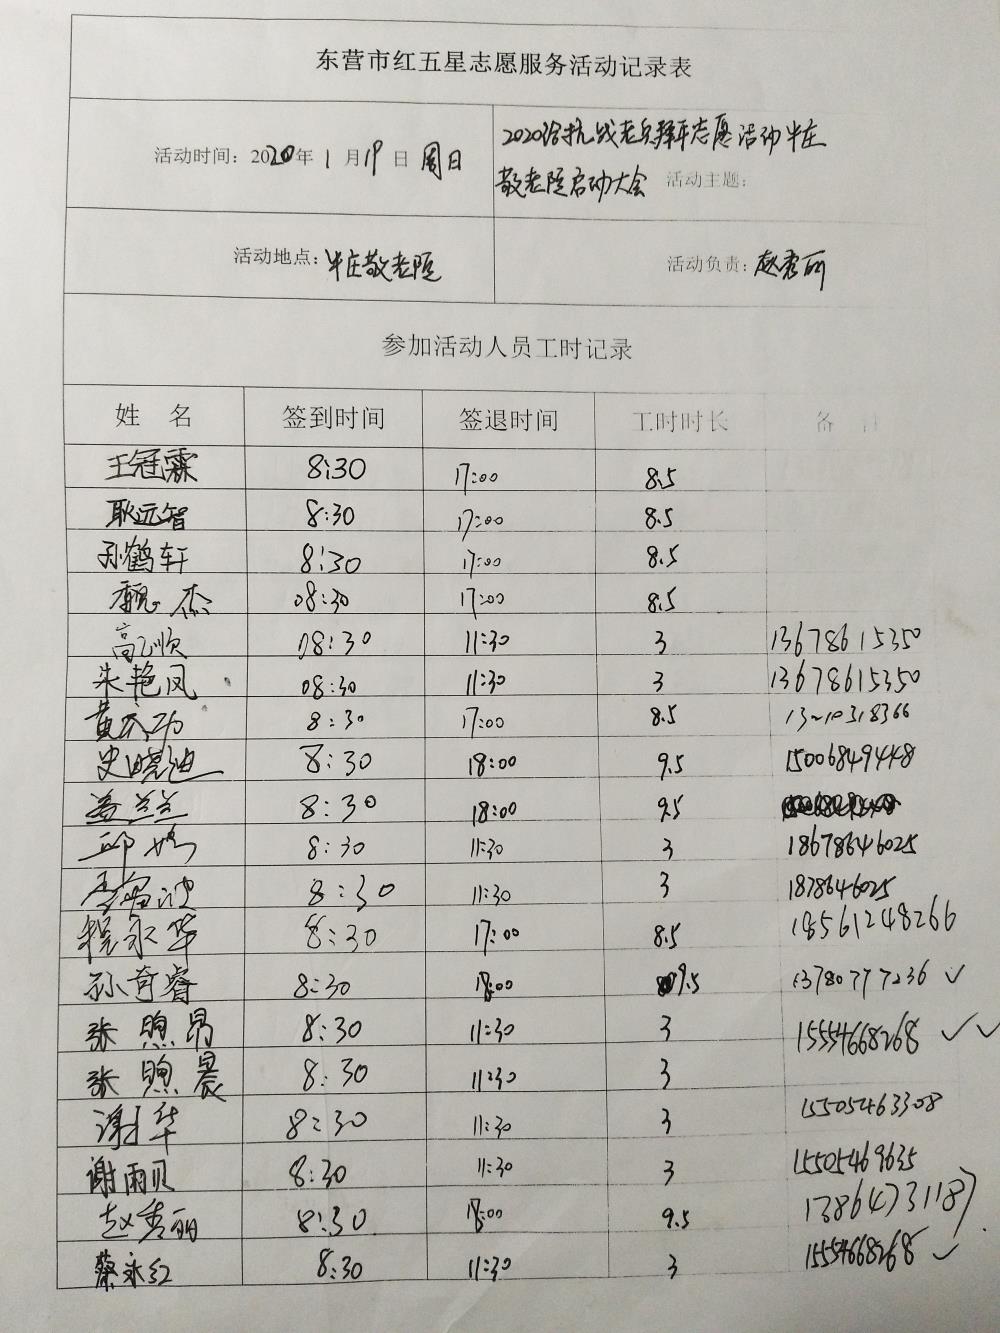 东营市红五星志愿服务活动记录表
活动时间：2020年1月19日 周日
2020给抗战老兵拜年志愿活动牛庄
敬老院启动大会 活动主题：
活动地点：牛庄敬老院
活动负责：赵秀丽
参加活动人员工时记录
姓 名 签到时间 签退时间 工时时长 备
王冠霖 8:30 17:00 8.5
耿远智 8:30 17:00 8.5
孙鹤轩 8:30 17:00 8.5
魏杰 08:30 17:00 8.5
高顺 08:30 11:30 3 13678615350
朱艳凤 08:30 11:30 3 13678615350
黄 功 8:30 17:00 8.5
史晓迪 8:30 18:00 9.5 15006849448
兰兰 8:30 18:00 9.5
邱 8:30 11:30 3 18678646025
8:30 11:30 3 1878646025
程永华 8:30 17:00 8.5 18561248266
孙奇睿 8:30 18:00 9.5 13780777236 ✓
张煦昂 8:30 11:30 3 15554668268 ✓✓
张煦晨 8:30 11:30 3
谢 华 8:30 11:30 3 15505463308
谢雨贝 8:30 11:30 3 15505469635
赵秀丽 8:30 18:00 9.5 13864731187
蔡永红 8:30 11:30 3 15554668268 ✓